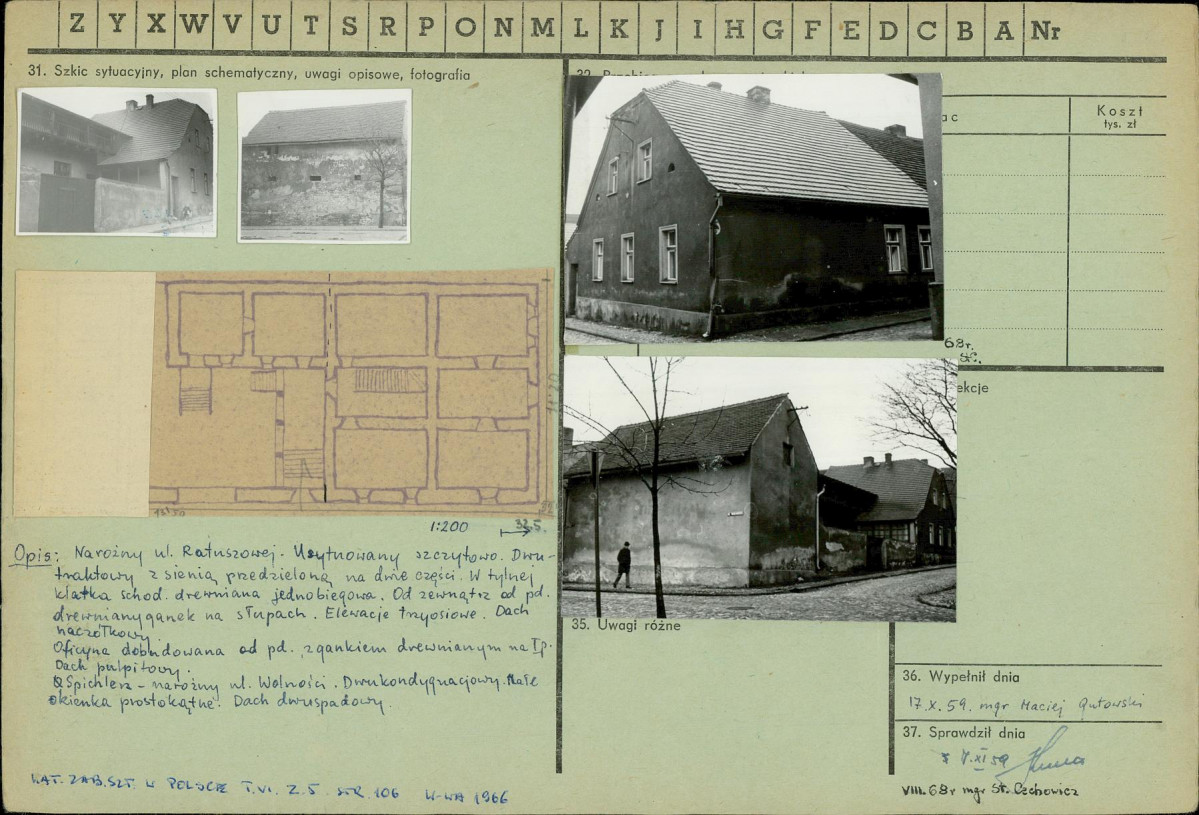 Z Y X W V U T S R P O N M L K J I H G F E D C B A Nr
31. Szkic sytuacyjny, plan schematyczny, uwagi opisowe, fotografia
ac
Koszt
tys. zł
68 r.
St.C.
ekcje
1:200
Opis: Narożny ul. Ratuszowej. Usytuowany szczytowo. Dwu-
traktowy z sienią przedzieloną na dwie części. W tylnej
klatka schod. drewniana jednobiegowa. Od zewnątrz od pd.
drewniany ganek na słupach. Elewacje trzyosiowe. Dach
naczółkowy.
Oficyna dobudowana od pd., z gankiem drewnianym na I p.
Dach pulpitowy.
Spichlerz - narożny ul. Wolności. Dwukondygnacjowy. Małe
okienka prostokątne. Dach dwuspadowy.
KAT. ZAB. SZT. W POLSCE T. VI. Z. 5 STR. 106 W-WA 1966
35. Uwagi różne
36. Wypełnił dnia
17.X.59. mgr Maciej Gutowski
37. Sprawdził dnia
7.XI 59
VIII.68r mgr St. Czechowicz